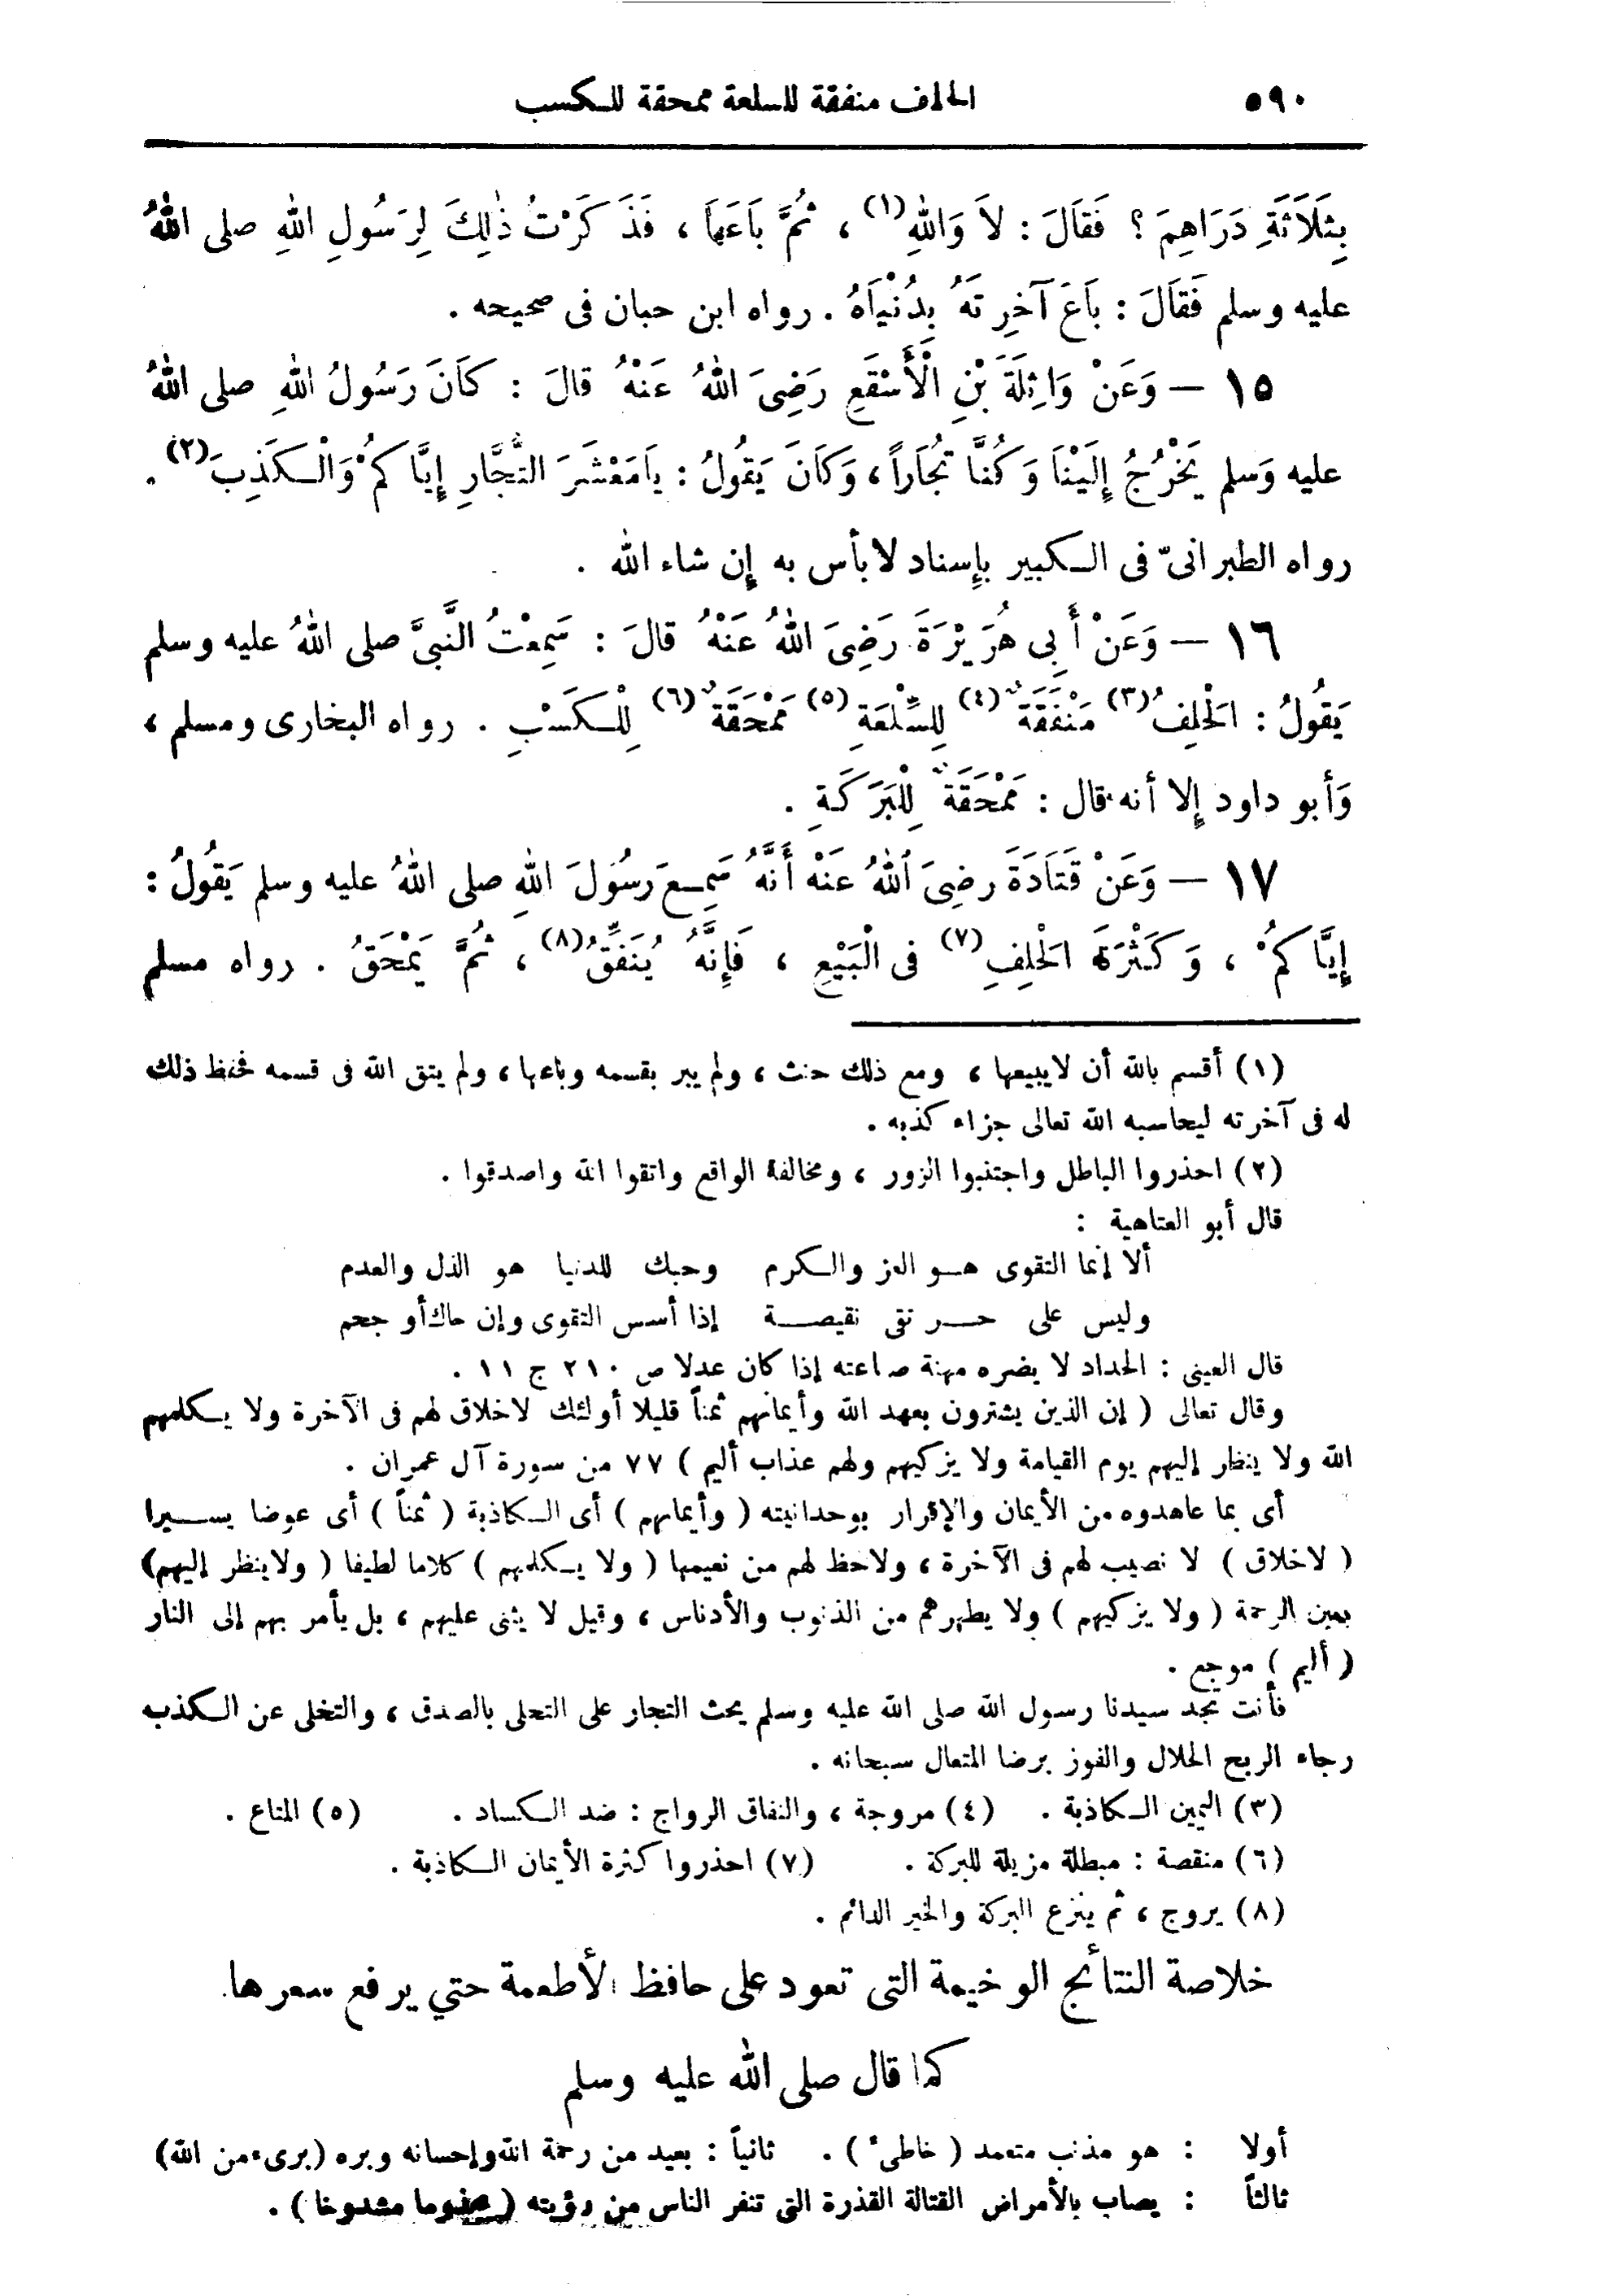 ٥٩٠ الحلف منفقة للسلعة ممحقة للكسب
بِثَلَاثَةِ دَرَاهِمَ ؟ فَقَالَ : لاَ وَاللهِ(١) ، ثُمَّ بَاعَهَا ، فَذَكَرْتُ ذٰلِكَ لِرَسُولِ اللهِ صلى اللهُ
عليه وسلم فَقَالَ : بَاعَ آخِرَتَهُ بِدُنْيَاهُ . رواه ابن حبان فى صحيحه .
١٥ — وَعَنْ وَاثِلَةَ بْنِ الْأَسْقَعِ رَضِىَ اللهُ عَنْهُ قالَ : كَانَ رَسُولُ اللهِ صلى اللهُ
عليه وَسلم يَخْرُجُ إِلَيْنَا وَكُنَّا تُجَاراً ، وَكَانَ يَقُولُ : يَامَعْشَرَ التُّجَّارِ إِيَّاكُمْ وَالْكَذِبَ(٢) .
رواه الطبرانىّ فى الكبير بإِسناد لابأس به إِن شاء الله .
١٦ — وَعَنْ أَبِى هُرَيْرَةَ رَضِىَ اللهُ عَنْهُ قالَ : سَمِعْتُ النَّبِىَّ صلى اللهُ عليه وسلم
يَقُولُ : الْحَلِفُ(٣) مَنْفَقَةٌ(٤) لِلسِّلْعَةِ(٥) مَمْحَقَةٌ(٦) لِلْكَسْبِ . رواه البخارى ومسلم ،
وَأبو داود إِلا أنه قال : مَمْحَقَةٌ لِلْبَرَكَةِ .
١٧ — وَعَنْ قَتَادَةَ رضِىَ اللهُ عَنْه أَنَّهُ سَمِعَ رسُولَ اللهِ صلى اللهُ عليه وسلم يَقُولُ :
إِيَّاكُمْ ، وَكَثْرَةَ الْحَلِفِ(٧) فى الْبَيْعِ ، فَإِنَّهُ يُنَفِّقُ(٨) ، ثُمَّ يَمْحَقُ . رواه مسلم
(١) أقسم بالله أن لايبيعها ، ومع ذلك حنث ، ولم يبر بقسمه وباعها ، ولم يتق الله فى قسمه فحفظ ذلك
له فى آخرته ليحاسبه الله تعالى جزاء كذبه .
(٢) احذروا الباطل واجتنبوا الزور ، ومخالفة الواقع واتقوا الله واصدقوا .
قال أبو العتاهية :
ألا إنما التقوى هو العز والكرم وحبك للدنيا هو الذل والعدم
وليس على حر تقى نقيصة إذا أسس التقوى وإن حاك أو حجم
قال العينى : الحداد لا يضره مهنة صناعته إذا كان عدلا ص ٢١٠ ج ١١ .
وقال تعالى ( إن الذين يشترون بعهد الله وأيمانهم ثمناً قليلا أولئك لاخلاق لهم فى الآخرة ولا يكلمهم
الله ولا ينظر إليهم يوم القيامة ولا يزكيهم ولهم عذاب أليم ) ٧٧ من سورة آل عمران .
أى بما عاهدوه من الأيمان والإقرار بوحدانيته ( وأيمانهم ) أى الكاذبة ( ثمناً ) أى عوضا يسيرا
( لاخلاق ) لا نصيب لهم فى الآخرة ، ولاحظ لهم من نعيمها ( ولا يكلمهم ) كلاما لطيفا ( ولاينظر إليهم)
بعين الرحمة ( ولا يزكيهم ) ولا يطهرهم من الذنوب والأدناس ، وقيل لا يثنى عليهم ، بل يأمر بهم إلى النار
( أليم ) موجع .
فأنت تجد سيدنا رسول الله صلى الله عليه وسلم يحث التجار على التحلى بالصدق ، والتخلى عن الكذب
رجاء الربح الحلال والفوز برضا المتعال سبحانه .
(٣) اليمين الكاذبة . (٤) مروجة ، والنفاق الرواج : ضد الكساد . (٥) المتاع .
(٦) منقصة : مبطلة مزيلة للبركة . (٧) احذروا كثرة الأيمان الكاذبة .
(٨) يروج ، ثم ينزع البركة والخير الدائم .
خلاصة النتائج الوخيمة التى تعود على حافظ الأطعمة حتي يرفع سعرها
كما قال صلى الله عليه وسلم
أولا : هو مذنب متعمد ( خاطئ ) . ثانياً : بعيد من رحمة الله وإحسانه وبره (برىء من الله)
ثالثاً : يصاب بالأمراض القتالة القذرة التى تنفر الناس من رؤيته ( مشدوخا ) .